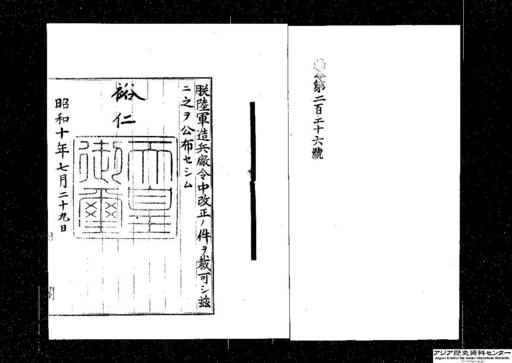 勅令第二百二十六號
朕陸軍造兵廠令中改正ノ件ヲ裁可シ茲
ニ之ヲ公布セシム
裕仁
天皇
御璽
昭和十年七月二十九日
アジア歴史資料センター
Japan Center for Asian Historical Records